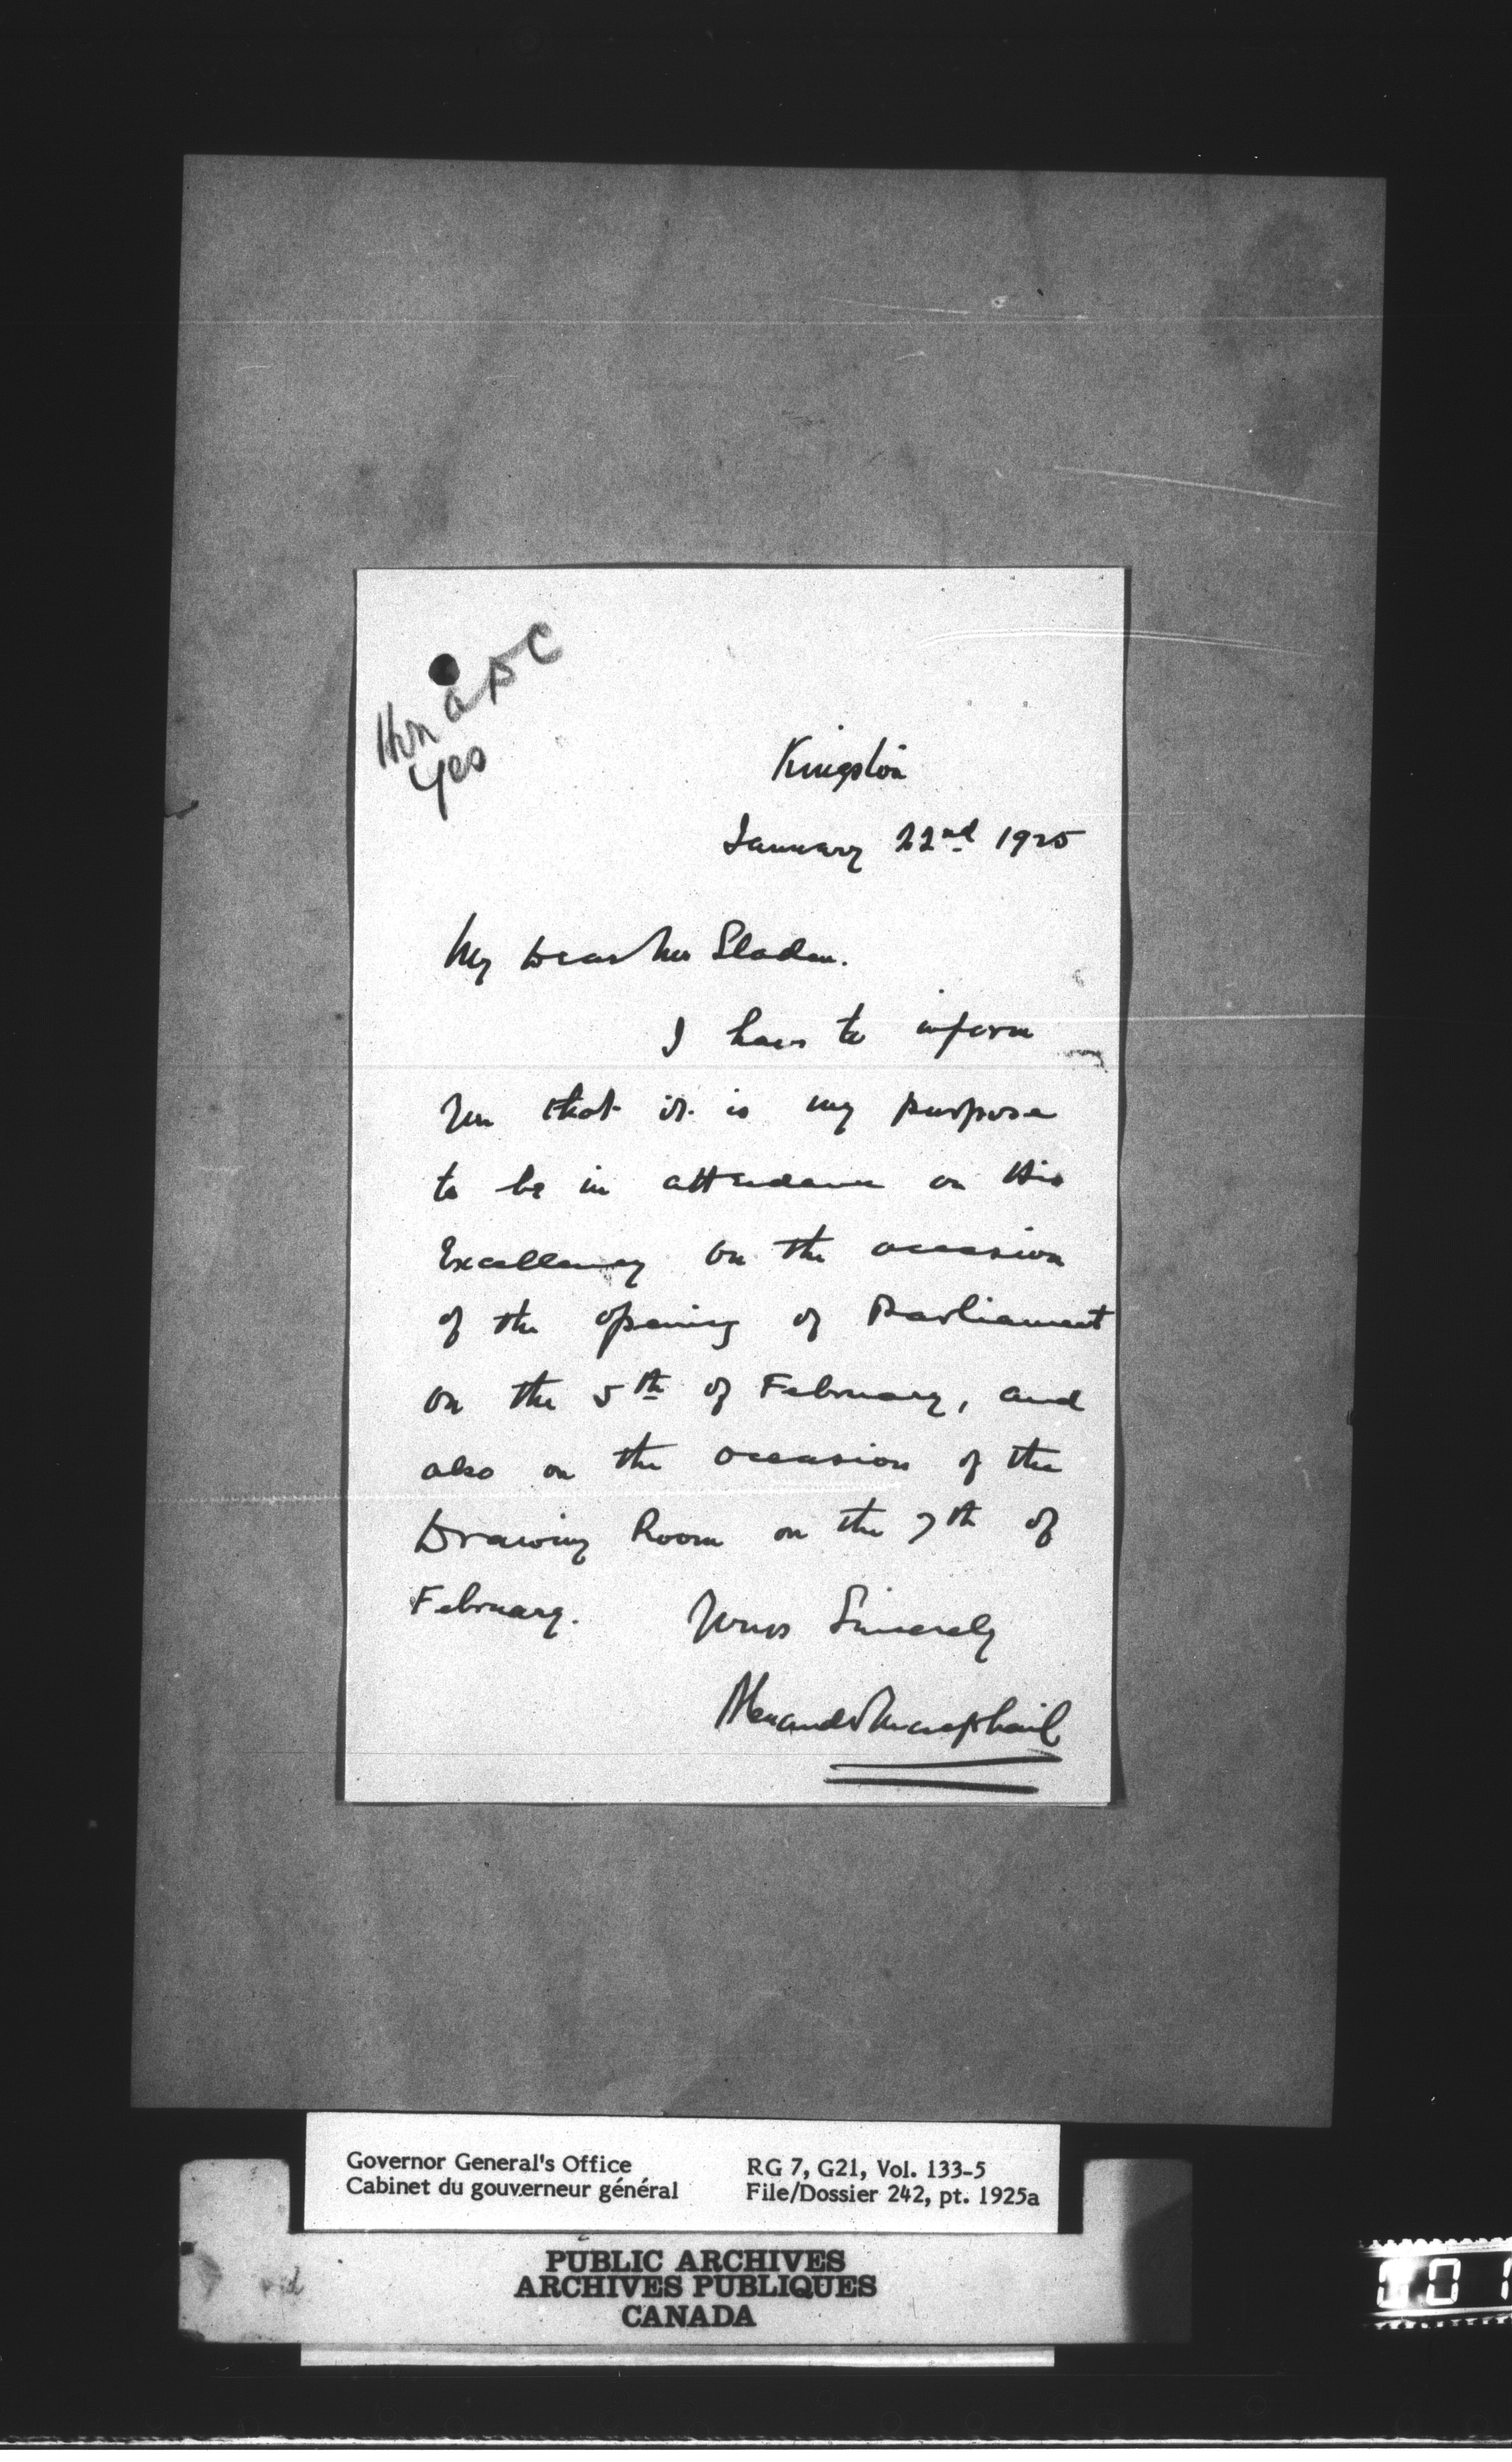 Hon ADC
Yes
Kingston
January 22nd 1925
My Dear Mr Sladen.
I have to inform
you that it is my purpose
to be in attendance on His
Excellency on the occasion
of the opening of Parliament
on the 5th of February, and
also on the occasion of the
Drawing Room on the 7th of
February.
Yours Sincerely
Alexander Macphail
Governor General's Office
Cabinet du gouverneur général
RG 7, G21, Vol. 133-5
File/Dossier 242, pt. 1925a
PUBLIC ARCHIVES
ARCHIVES PUBLIQUES
CANADA